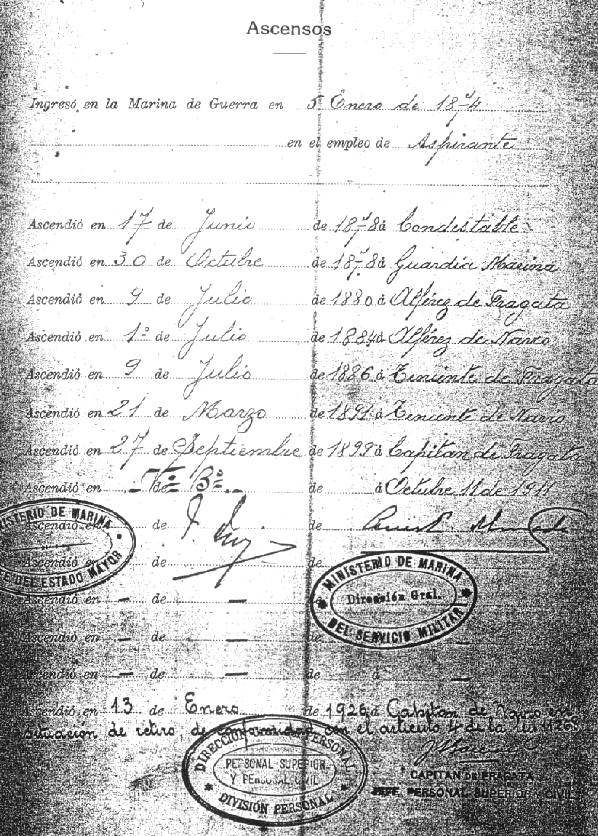 Ascensos
Ingresó en la Marina de Guerra en 5 Enero de 1874
en el empleo de Aspirante
Ascendió en 17 de Junio de 1878 á Condestable
Ascendió en 30 de Octubre de 1878 á Guardia Marina
Ascendió en 9 de Julio de 1880 á Alférez de Fragata
Ascendió en 1º de Julio de 1884 á Alférez de Navio
Ascendió en 9 de Julio de 1886 á Teniente de Fragata
Ascendió en 21 de Marzo de 1891 á Teniente de Navio
Ascendió en 27 de Septiembre de 1899 á Capitan de Fragata
Ascendió en de Vº Bº de á Octubre 11 de 1911
Ascendió en de de
Ascendió en de
MINISTERIO DE MARINA
JEFE DEL ESTADO MAYOR
MINISTERIO DE MARINA
Dirección Gral.
DEL SERVICIO MILITAR
Ascendió en — de — de
Ascendió en — de — de
Ascendió en — de — de á
Ascendió en 13 de Enero de 1926 á Capitan de Navio
situacion de retiro de conformidad con el articulo 4 de la ley 9268
DIRECCION PERSONAL
PERSONAL SUPERIOR
Y PERSONAL CIVIL
DIVISIÓN PERSONAL
CAPITAN DE FRAGATA
JEFE PERSONAL SUPERIOR Y CIVIL